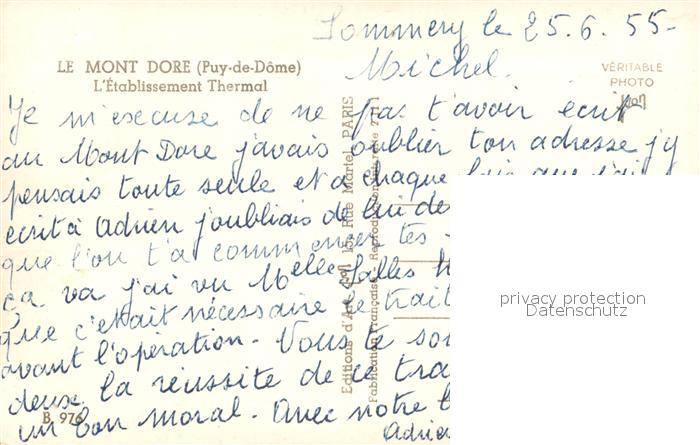 Sommery le 25.6.55-
LE MONT DORE (Puy-de-Dôme)
L'Établissement Thermal
Michel.
VÉRITABLE
PHOTO
Je m'excuse de ne pas t'avoir écrit
au Mont Dore j'avais oublier ton adresse j'y
pensais toute seule et a chaque fois que j'ai
ecrit à Adrien j'oubliais de lui de
que l'on t'a commencer tes
ça va j'ai vu Melle Salles
que c'etait nécessaire ce trait
avant l'opération - Vous te sou
deux la réussite de ce tra
un bon moral. Avec notre
Adrie
B 976
Editions d'Art 15, Rue Martel, PARIS
Fabrication Française Reproduction interdite
privacy protection
Datenschutz